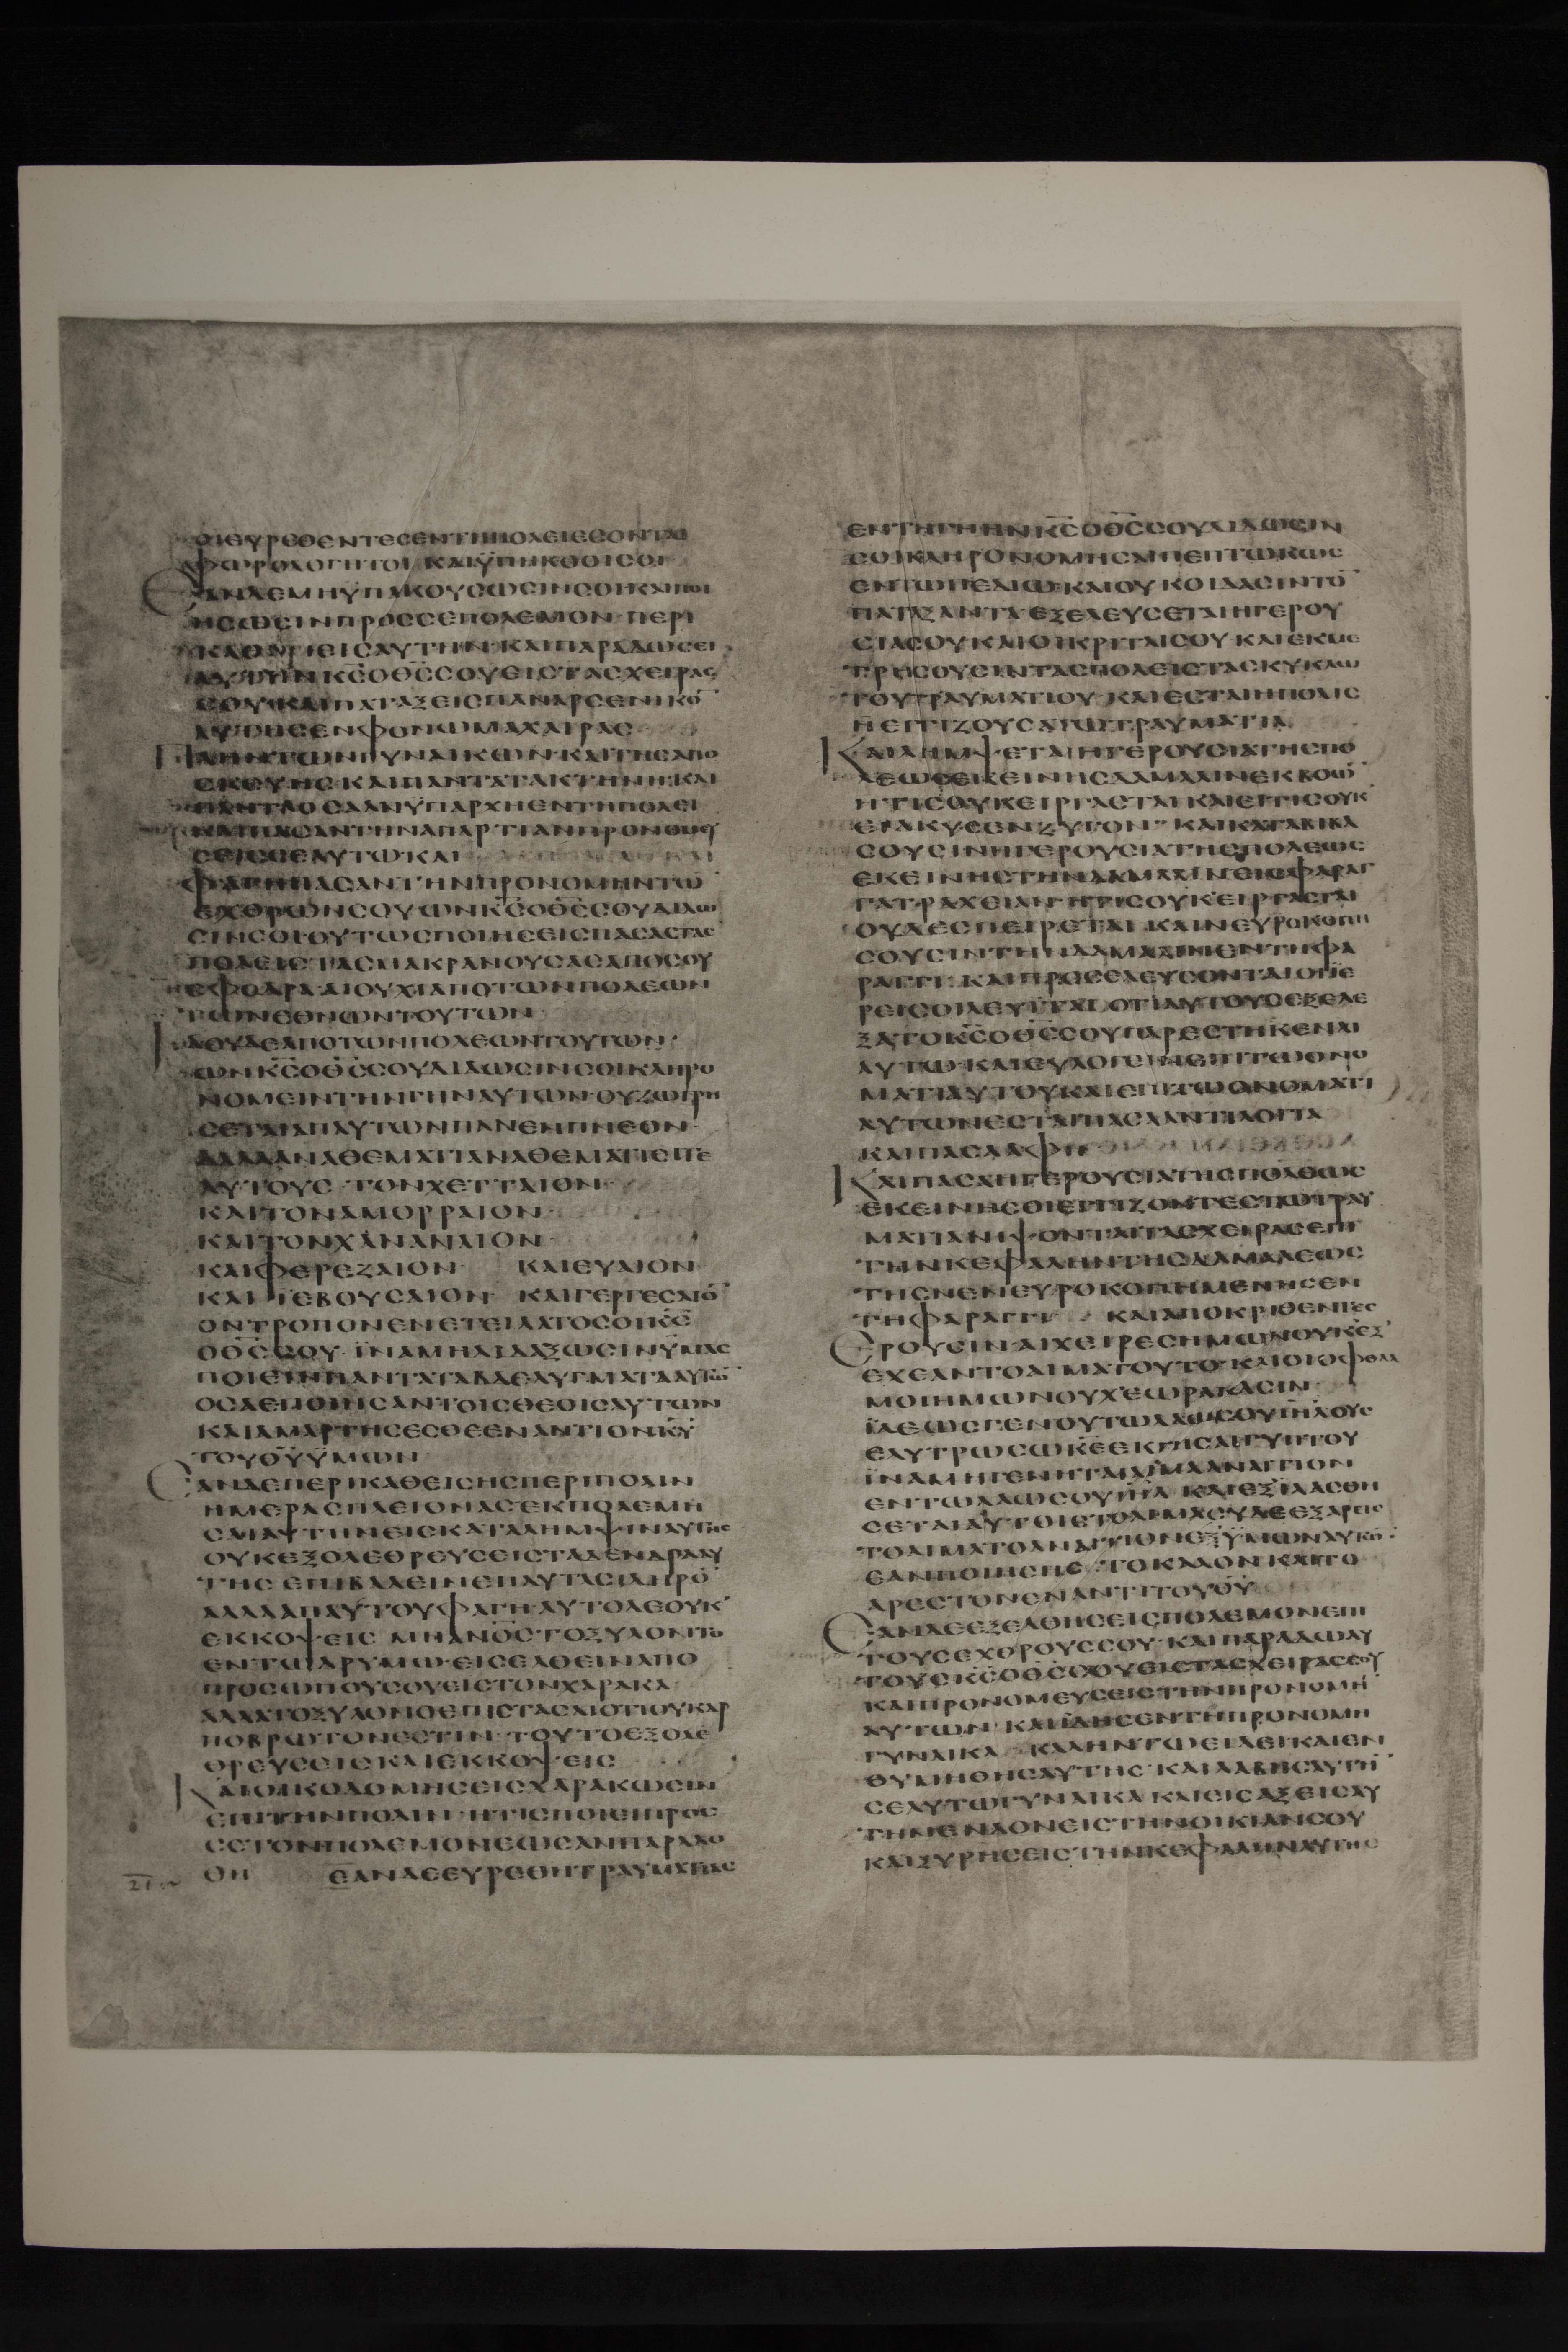 ΟΙΕΥΡΕΘΕΝΤΕΣΕΝΤΗΠΟΛΕΙΕΣΟΝΤΑΙ
ΦΟΡΟΛΟΓΗΤΟΙ ΚΑΙΫΠΗΚΟΟΙΣΟΙ
ΕΑΝΔΕΜΗΫΠΑΚΟΥΣΩΣΙΝΣΟΙΚΑΙΠΟΙ
ΗΣΩΣΙΝΠΡΟΣΣΕΠΟΛΕΜΟΝ ΠΕΡΙ
ΚΑΘΙΕΙΣΑΥΤΗΝ ΚΑΙΠΑΡΑΔΩΣΕΙ
ΑΥΤΗΝΚ̅Σ̅ΟΘ̅Σ̅ΣΟΥΕΙΣΤΑΣΧΕΙΡΑΣ
ΣΟΥ ΚΑΙΠΑΤΑΞΕΙΣΠΑΝΑΡΣΕΝΙΚΟ̅
ΑΥΤΗΣΕΝΦΟΝΩΜΑΧΑΙΡΑΣ
ΠΛΗΝΤΩΝΓΥΝΑΙΚΩΝ ΚΑΙΤΗΣΑΠΟ
ΣΚΕΥΗΣ ΚΑΙΠΑΝΤΑΤΑΚΤΗΝΗ ΚΑΙ
ΠΑΝΤΑΟΣΑΑΝΫΠΑΡΧΗΕΝΤΗΠΟΛΕΙ
ΚΑΙΠΑΣΑΝΤΗΝΑΠΑΡΤΙΑΝΠΡΟΝΟΜΕΥ
ΣΕΙΣΣΕΑΥΤΩ ΚΑΙ
ΦΑΓΗΠΑΣΑΝΤΗΝΠΡΟΝΟΜΗΝΤΩ̅
ΕΧΘΡΩΝΣΟΥΩΝΚ̅Σ̅ΟΘ̅Σ̅ΣΟΥΔΙΔΩ
ΣΙΝΣΟΙ ΟΥΤΩΣΠΟΙΗΣΕΙΣΠΑΣΑΣΤΑΣ
ΠΟΛΕΙΣΤΑΣΜΑΚΡΑΝΟΥΣΑΣΑΠΟΣΟΥ
ΣΦΟΔΡΑ ΑΙΟΥΧΙΑΠΟΤΩΝΠΟΛΕΩΝ
ΤΩΝΕΘΝΩΝΤΟΥΤΩΝ
ΙΔΟΥΔΕΑΠΟΤΩΝΠΟΛΕΩΝΤΟΥΤΩΝ
ΩΝΚ̅Σ̅ΟΘ̅Σ̅ΣΟΥΔΙΔΩΣΙΝΣΟΙΚΛΗΡΟ
ΝΟΜΕΙΝΤΗΝΓΗΝΑΥΤΩΝ ΟΥΖΩΓΡΗ
ΣΕΤΑΙΑΠΑΥΤΩΝΠΑΝΕΜΠΝΕΟΝ
ΑΛΛΑΑΝΑΘΕΜΑΤΙΑΝΑΘΕΜΑΤΙΕΙΤΕ
ΑΥΤΟΥΣ ΤΟΝΧΕΤΤΑΙΟΝ
ΚΑΙΤΟΝΑΜΟΡΡΑΙΟΝ
ΚΑΙΤΟΝΧΑΝΑΝΑΙΟΝ
ΚΑΙΦΕΡΕΖΑΙΟΝ ΚΑΙΕΥΑΙΟΝ
ΚΑΙ ΪΕΒΟΥΣΑΙΟΝ ΚΑΙΓΕΡΓΕΣΑΙΟ̅
ΟΝΤΡΟΠΟΝΕΝΕΤΕΙΛΑΤΟΣΟΙΚ̅Σ̅
ΟΘ̅Σ̅ΣΟΥ ΪΝΑΜΗΔΙΔΑΞΩΣΙΝΫΜΑΣ
ΠΟΙΕΙΝΠΑΝΤΑΤΑΒΔΕΛΥΓΜΑΤΑΑΥΤΩ̅
ΟΣΑΕΠΟΙΗΣΑΝΤΟΙΣΘΕΟΙΣΑΥΤΩΝ
ΚΑΙΑΜΑΡΤΗΣΕΣΘΕΕΝΑΝΤΙΟΝΚ̅Υ̅
ΤΟΥΘ̅Υ̅ΫΜΩΝ
ΕΑΝΔΕΠΕΡΙΚΑΘΕΙΣΗΣΠΕΡΙΠΟΛΙΝ
ΗΜΕΡΑΣΠΛΕΙΟΝΑΣ ΕΚΠΟΛΕΜΗ
ΣΑΙΑΥΤΗΝΕΙΣΚΑΤΑΛΗΜΨΙΝΑΥΤΗΣ
ΟΥΚΕΞΟΛΕΘΡΕΥΣΕΙΣΤΑΔΕΝΔΡΑΑΥ
ΤΗΣ ΕΠΙΒΑΛΕΙΝΕΠΑΥΤΑΣΙΔΗΡΟ̅
ΑΛΛΑΑΠΑΥΤΟΥΦΑΓΗ ΑΥΤΟΔΕΟΥΚ
ΕΚΚΟΨΕΙΣ ΜΗΑΝΟ̅Σ̅ΤΟΞΥΛΟΝΤΟ
ΕΝΤΩΔΡΥΜΩ ΕΙΣΕΛΘΕΙΝΑΠΟ
ΠΡΟΣΩΠΟΥΣΟΥΕΙΣΤΟΝΧΑΡΑΚΑ
ΑΛΛΑΤΟΞΥΛΟΝΟΕΠΙΣΤΑΣΑΙΟΤΙΟΥΚΑΡ
ΠΟΒΡΩΤΟΝΕΣΤΙΝ ΤΟΥΤΟΕΞΟΛΕ
ΘΡΕΥΣΕΙΣΚΑΙΕΚΚΟΨΕΙΣ
ΚΑΙΟΙΚΟΔΟΜΗΣΕΙΣΧΑΡΑΚΩΣΙΝ
ΕΠΙΤΗΝΠΟΛΙΝ ΗΤΙΣΠΟΙΕΙΠΡΟΣ
ΣΕΤΟΝΠΟΛΕΜΟΝΕΩΣΑΝΠΑΡΑΔΟ
ΘΗ ΕΑΝΔΕΕΥΡΕΘΗΤΡΑΥΜΑΤΙΑΣ
ΕΝΤΗΓΗΗΝΚ̅Σ̅ΟΘ̅Σ̅ΣΟΥΔΙΔΩΣΙΝ
ΣΟΙΚΛΗΡΟΝΟΜΗΣΑΙΠΕΠΤΩΚΩΣ
ΕΝΤΩΠΕΔΙΩ ΚΑΙΟΥΚΟΙΔΑΣΙΝΤΟ̅
ΠΑΤΑΞΑΝΤΑΕΞΕΛΕΥΣΕΤΑΙΗΓΕΡΟΥ
ΣΙΑΣΟΥΚΑΙΟΙΚΡΙΤΑΙΣΟΥ ΚΑΙΕΚΜΕ
ΤΡΗΣΟΥΣΙΝΤΑΣΠΟΛΕΙΣΤΑΣΚΥΚΛΩ
ΤΟΥΤΡΑΥΜΑΤΙΟΥ ΚΑΙΕΣΤΑΙΗΠΟΛΙΣ
ΗΕΓΓΙΖΟΥΣΑΤΩΤΡΑΥΜΑΤΙΑ
ΚΑΙΛΗΜΨΕΤΑΙΗΓΕΡΟΥΣΙΑΤΗΣΠΟ
ΛΕΩΣΕΚΕΙΝΗΣΔΑΜΑΛΙΝΕΚΒΟΩ̅
ΗΤΙΣΟΥΚΕΙΡΓΑΣΤΑΙ ΚΑΙΗΤΙΣΟΥΚ
ΕΙΛΚΥΣΕΝΖΥΓΟΝ ΚΑΙΚΑΤΑΒΙΒΑ
ΣΟΥΣΙΝΗΓΕΡΟΥΣΙΑΤΗΣΠΟΛΕΩΣ
ΕΚΕΙΝΗΣΤΗΝΔΑΜΑΛΙΝΕΙΣΦΑΡΑΓ
ΓΑΤΡΑΧΕΙΑΝ ΗΤΙΣΟΥΚΕΙΡΓΑΣΤΑΙ
ΟΥΔΕΣΠΕΙΡΕΤΑΙ ΚΑΙΝΕΥΡΟΚΟΠΗ
ΣΟΥΣΙΝΤΗΝΔΑΜΑΛΙΝΕΝΤΗΦΑ
ΡΑΓΓΙ ΚΑΙΠΡΟΣΕΛΕΥΣΟΝΤΑΙΟΙΪΕ
ΡΕΙΣΟΙΛΕΥΪΤΑΙ ΟΤΙΑΥΤΟΥΣΕΞΕΛΕ
ΞΑΤΟΚ̅Σ̅ΟΘ̅Σ̅ΣΟΥΠΑΡΕΣΤΗΚΕΝΑΙ
ΑΥΤΩ ΚΑΙΕΥΛΟΓΕΙΝΕΠΙΤΩΟΝΟ
ΜΑΤΙΑΥΤΟΥΚΑΙΕΠΙΤΩΟΝΟΜΑΤΙ
ΑΥΤΩΝΕΣΤΑΙΠΑΣΑΑΝΤΙΛΟΓΙΑ
ΚΑΙΠΑΣΑΑΦΗ
ΚΑΙΠΑΣΑΗΓΕΡΟΥΣΙΑΤΗΣΠΟΛΕΩΣ
ΕΚΕΙΝΗΣΟΙΕΓΓΙΖΟΝΤΕΣΤΩΤΡΑΥ
ΜΑΤΙΑΝΙΨΟΝΤΑΙΤΑΣΧΕΙΡΑΣΕΠΙ
ΤΗΝΚΕΦΑΛΗΝΤΗΣΔΑΜΑΛΕΩΣ
ΤΗΣΝΕΝΕΥΡΟΚΟΠΗΜΕΝΗΣΕΝ
ΤΗΦΑΡΑΓΓΙ ΚΑΙΑΠΟΚΡΙΘΕΝΤΕΣ
ΕΡΟΥΣΙΝ ΑΙΧΕΙΡΕΣΗΜΩΝΟΥΚΕΞ
ΕΧΕΑΝΤΟΑΙΜΑΤΟΥΤΟ ΚΑΙΟΙΟΦΘΑΛ
ΜΟΙΗΜΩΝΟΥΧΕΩΡΑΚΑΣΙΝ
ΪΛΕΩΣΓΕΝΟΥΤΩΛΑΩΣΟΥΙ̅Η̅Λ̅ΟΥΣ
ΕΛΥΤΡΩΣΩΚ̅Ε̅ΕΚΓΗΣΑΙΓΥΠΤΟΥ
ΪΝΑΜΗΓΕΝΗΤΑΙΑΙΜΑΑΝΑΙΤΙΟΝ
ΕΝΤΩΛΑΩΣΟΥΙ̅Η̅Λ̅ ΚΑΙΕΞΪΛΑΣΘΗ
ΣΕΤΑΙΑΥΤΟΙΣΤΟΑΙΜΑΣΥΔΕΕΞΑΡΕΙΣ
ΤΟΑΙΜΑΤΟΑΝΑΙΤΙΟΝΕΞΫΜΩΝΑΥΤΩ̅
ΕΑΝΠΟΙΗΣΗΣ ΤΟΚΑΛΟΝΚΑΙΤΟ
ΑΡΕΣΤΟΝΕΝΑΝΤΙΤΟΥΘ̅Υ̅
ΕΑΝΔΕΕΞΕΛΘΗΣΕΙΣΠΟΛΕΜΟΝΕΠΙ
ΤΟΥΣΕΧΘΡΟΥΣΣΟΥ ΚΑΙΠΑΡΑΔΩΑΥ
ΤΟΥΣΚ̅Σ̅ΟΘ̅Σ̅ΣΟΥΕΙΣΤΑΣΧΕΙΡΑΣΣΟΥ
ΚΑΙΠΡΟΝΟΜΕΥΣΕΙΣΤΗΝΠΡΟΝΟΜΗ̅
ΑΥΤΩΝ ΚΑΙΪΔΗΣΕΝΤΗΠΡΟΝΟΜΗ
ΓΥΝΑΙΚΑ ΚΑΛΗΝΤΩΕΙΔΕΙΚΑΙΕΝ
ΘΥΜΗΘΗΣΑΥΤΗΣ ΚΑΙΛΑΒΗΣΑΥΤΗ̅
ΣΕΑΥΤΩΓΥΝΑΙΚΑ ΚΑΙΕΙΣΑΞΕΙΣΑΥ
ΤΗΝΕΝΔΟΝΕΙΣΤΗΝΟΙΚΙΑΝΣΟΥ
ΚΑΙΞΥΡΗΣΕΙΣΤΗΝΚΕΦΑΛΗΝΑΥΤΗΣ